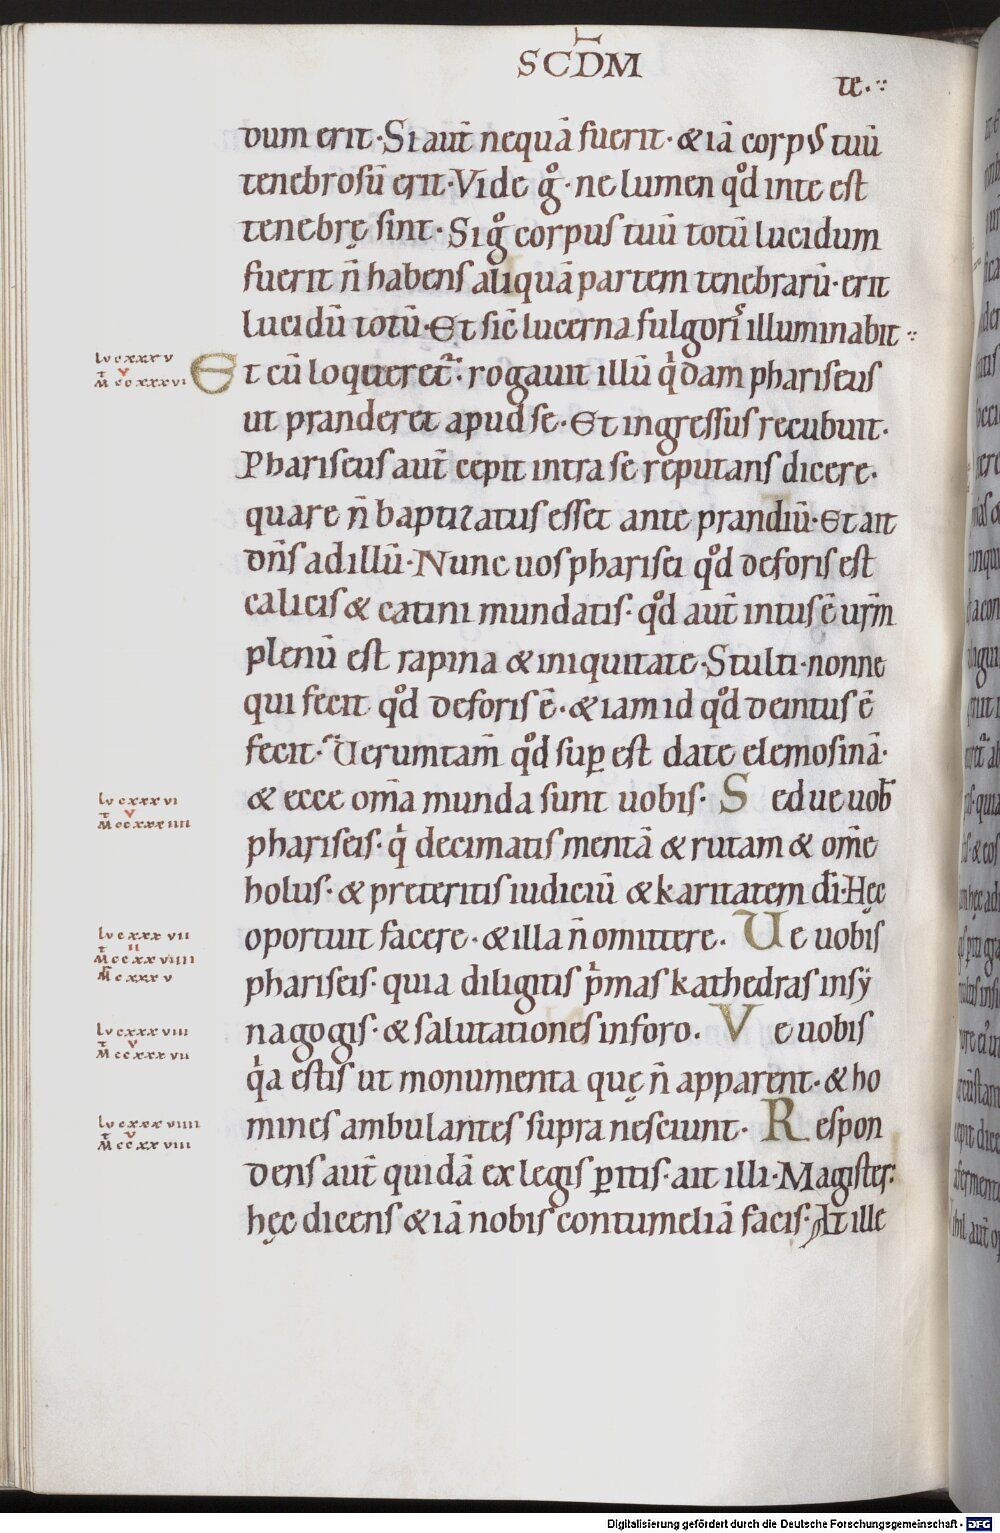 SCDM
te.
dum erit· Si aut̄ nequā fuerit· & iā corpus tuū
tenebrosū erit· Vide gͦ· ne lumen qd̊ in te est
tenebrę sint· Si gͦ corpus tuū totū lucidum
fuerit n̄ habens aliquā partem tenebrarū· erit
lucidū totū· Et sic̄ lucerna fulgoris illuminabit
lv cxxxv
Mt v ccxxxvi
Et cū loqueret᷑· rogauit illū qͥdam phariseus
ut pranderet apud se· Et ingressus recubuit·
Phariseus aut̄ cepit intra se reputans dicere·
quare n̄ baptizatus esset ante prandiū· Et ait
dn̄s ad illū· Nunc uos pharisei qd̊ deforis est
calicis & catini mundatis· qd̊ aut̄ intus ē ur̄m
plenū est rapina & iniquitate· Stulti· nonne
qui fecit qd̊ deforis ē· & iam id qd̊ deintus ē
fecit· Uerumtam̄ qd̊ sup̱est date elemosinā·
lv cxxxvi
Mt v ccxxxiiii
& ecce om̄a munda sunt uobis· Sed ue uob̄
phariseis· qͥ decimatis mentā & rutam & om̄e
holus· & preteritis iudiciū & karitatem dī· Hęc
lv cxxxvii
Mt ii ccxxviiii
M̄c cxxxv
oportuit facere· & illa n̄ omittere· Ue uobis
phariseis· quia diligitis pͥmas kathedras in sy
lv cxxxviii
Mt v ccxxxvii
nagogis· & salutationes in foro· Ve uobis
qͥa estis ut monumenta quę n̄ apparent· & ho
lv cxxxviiii
Mt v ccxxxviii
mines ambulantes supra nesciunt· Respon
dens aut̄ quidā ex legis p̱itis· ait illi· Magister·
hęc dicens & iā nobis contumeliā facis· At ille
Digitalisierung gefördert durch die Deutsche Forschungsgemeinschaft - DFG